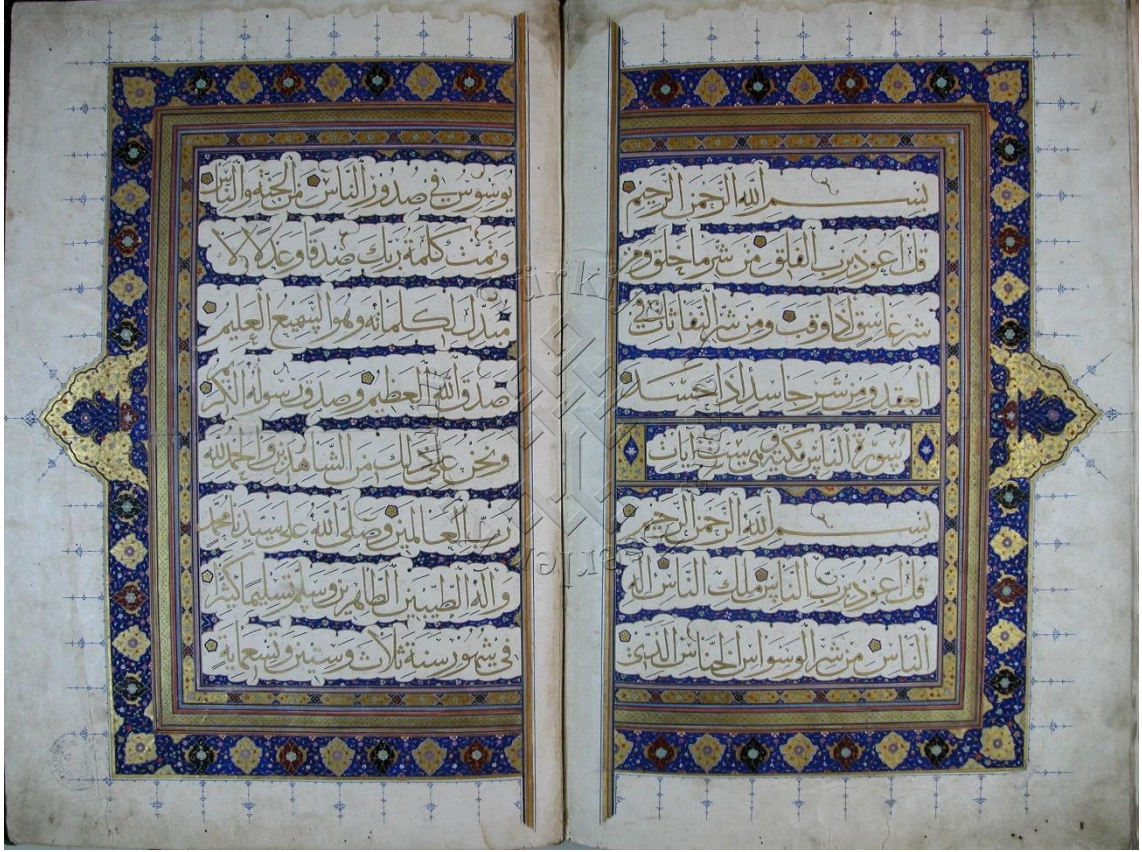 بسم الله الرحمن الرحيم
قل اعوذ برب الفلق من شر ما خلق ومن
شر غاسق اذا وقب ومن شر النفاثات في
العقد ومن شر حاسد اذا حسد
سورة الناس مكية وهي ست ايات
بسم الله الرحمن الرحيم
قل اعوذ برب الناس ملك الناس اله
الناس من شر الوسواس الخناس الذي
يوسوس في صدور الناس من الجنة والناس
وتمت كلمة ربك صدقا وعدلا لا
مبدل لكلماته وهو السميع العليم
صدق الله العظيم وصدق رسوله الكريم
ونحن على ذلك من الشاهدين والحمد لله
رب العالمين وصلى الله على سيدنا محمد
وآله الطيبين الطاهرين وسلم تسليما كثيرا
في شهور سنة ثلاث وستين وتسعمايه